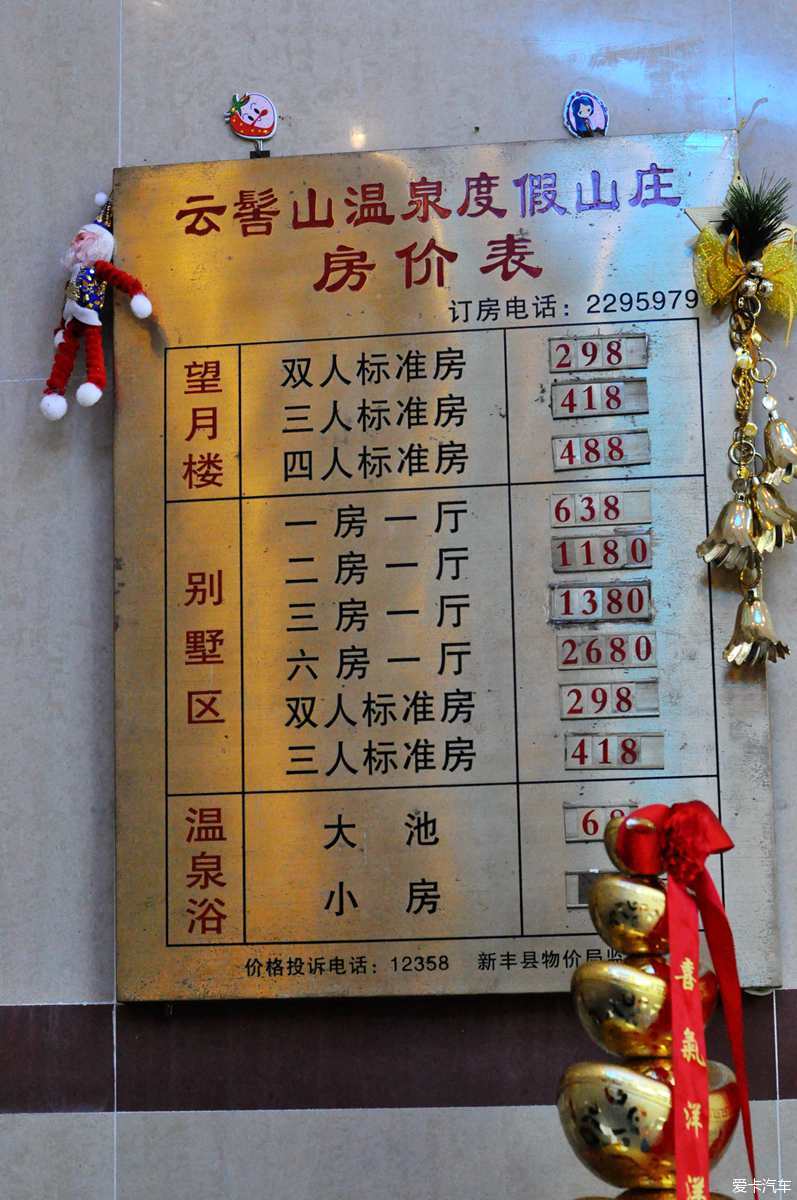 云髻山温泉度假山庄
房价表
订房电话：2295979
望月楼
双人标准房 298
三人标准房 418
四人标准房 488
别墅区
一房一厅 638
二房一厅 1180
三房一厅 1380
六房一厅 2680
双人标准房 298
三人标准房 418
温泉浴
大池 68
小房
价格投诉电话：12358 新丰县物价局
喜氣洋洋
爱卡汽车